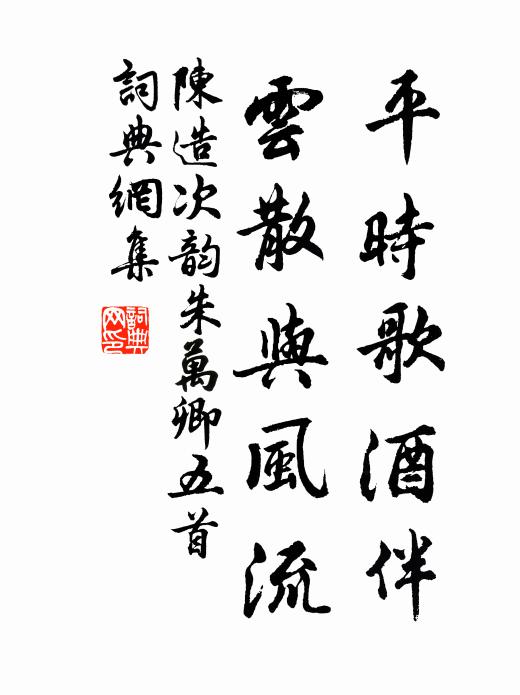 平時歌酒伴
雲散與風流
陳造次韵朱萬卿五首
詞典網集
詞典
网印